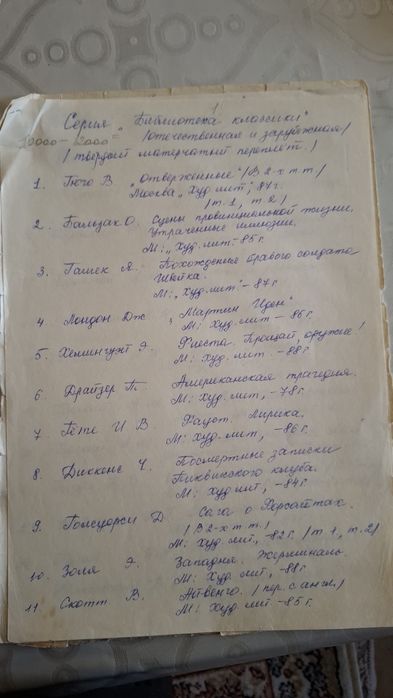 1
Серия „Библиотека классики"
/отечественная и зарубежная/
/твердый матерчатый переплёт./
1. Гюго В „Отверженные" /В 2-х тт/
Москва „Худ лит", 87г.
/т. 1, т 2/
2. Бальзак О. Сцены провинциальной жизни.
Утраченные иллюзии.
М: „Худ. лит"- 85 г.
3. Гашек Я. Похождение бравого солдата
Швейка.
М: „Худ. лит"- 87 г
4. Лондон Дж „Мартин Иден"
М: Худ. лит - 86 г.
5. Хемингуэй Э. Фиеста. Прощай, оружие!
М: Худ. лит - 88 г.
6. Драйзер Т. Американская трагедия.
М: Худ. лит, -78 г.
7. Гёте И В Фауст. Лирика.
М: Худ. лит, -86 г.
8. Диккенс Ч. Посмертные записки
Пиквикского клуба.
М: худ лит, -84г
9. Голсуорси Д Сага о Форсайтах.
/В 2-х тт./
М: Худ. лит, -82 г. /т 1, т. 2/
10. Золя Э. Западня. Жерминаль.
М: Худ. лит, -88г.
11. Скотт В. Айвенго. /пер. с англ./
М: Худ. лит - 85 г.